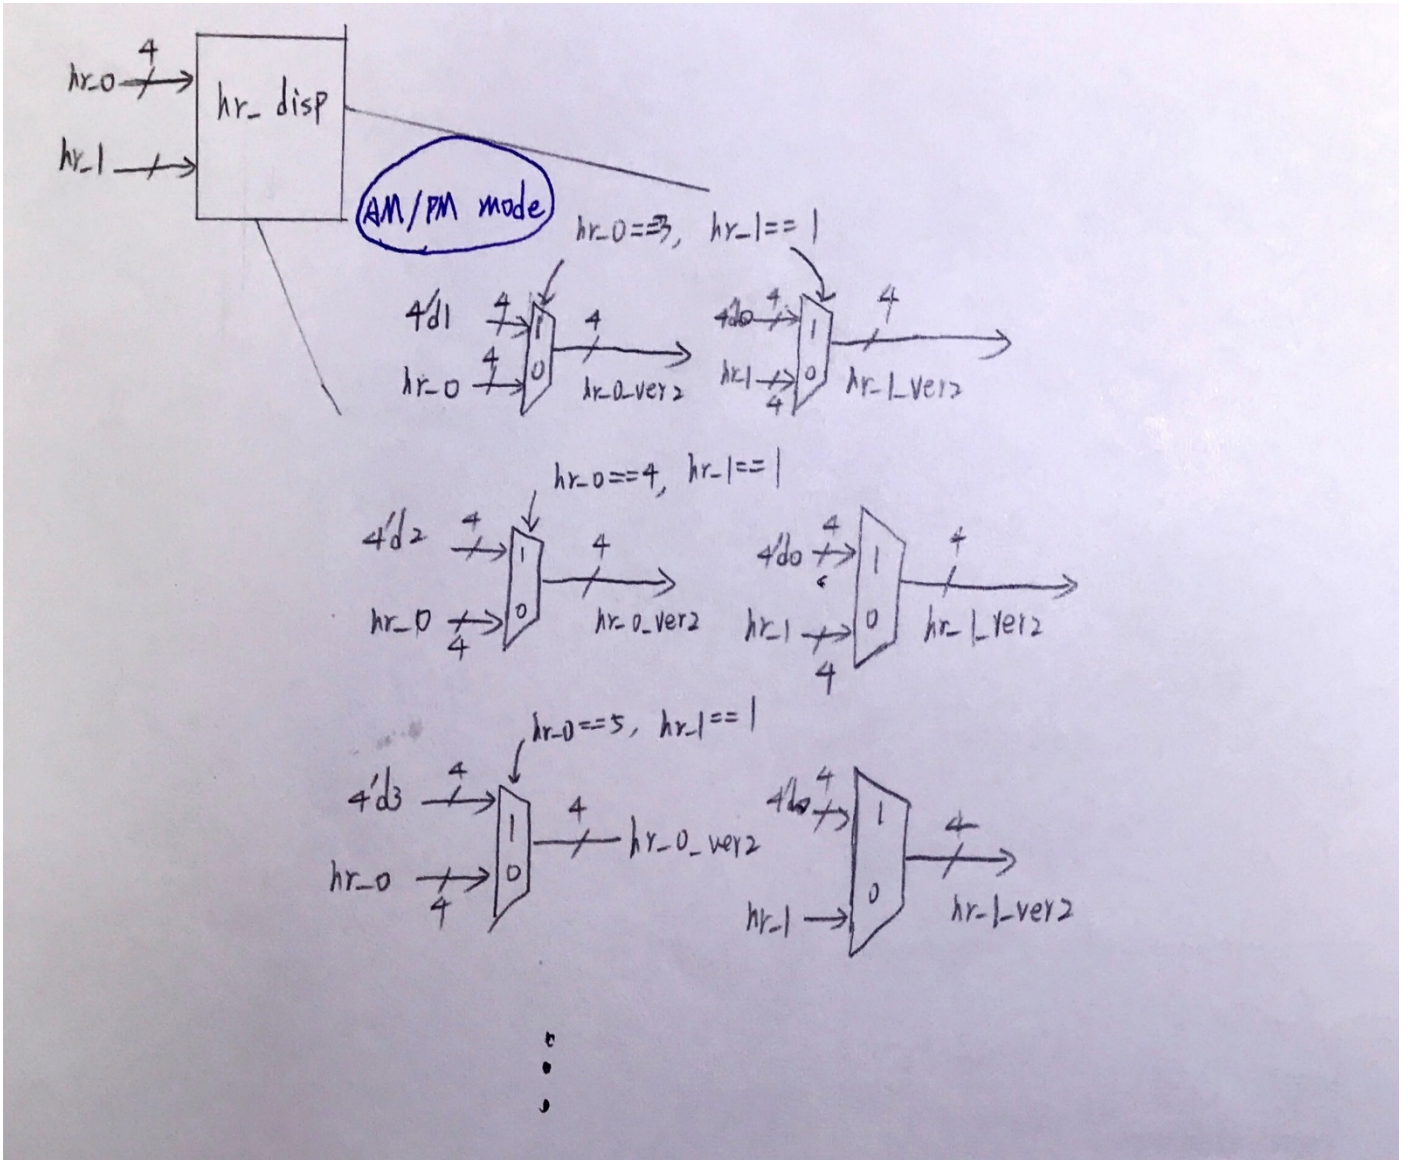 4
hr_0
hr_disp
hr_1
AM/PM mode
hr_0==3, hr_1==1
4'd1 4 1 4
hr_0 4 0 hr_0_ver2
4'd0 4 1 4
hr_1 4 0 hr_1_ver2
hr_0==4, hr_1==1
4'd2 4 1 4
hr_0 4 0 hr_0_ver2
4'd0 4 1 4
hr_1 4 0 hr_1_ver2
hr_0==5, hr_1==1
4'd3 4 1 4 hr_0_ver2
hr_0 4 0
4'd0 4 1 4
hr_1 0 hr_1_ver2